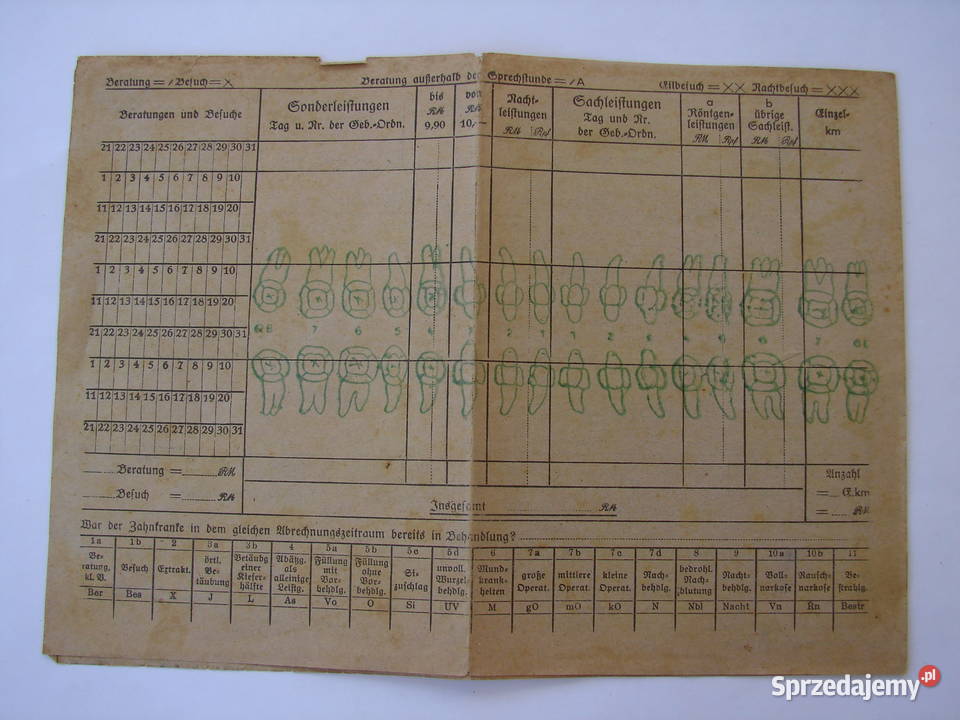 Beratung = / Besuch = X Beratung außerhalb der Sprechstunde = / A Eilbesuch = XX Nachtbesuch = XXX
Beratungen und Besuche
Sonderleistungen
Tag u. Nr. der Geb.-Ordn.
bis RM 9,90
von RM 10,—
Nacht-
leistungen
RM Rpf
Sachleistungen
Tag und Nr.
der Geb.-Ordn.
a
Röntgen-
leistungen
RM Rpf
b
übrige
Sachleist.
RM Rpf
Einzel-
km
21 22 23 24 25 26 27 28 29 30 31
1 2 3 4 5 6 7 8 9 10
11 12 13 14 15 16 17 18 19 20
21 22 23 24 25 26 27 28 29 30 31
1 2 3 4 5 6 7 8 9 10
11 12 13 14 15 16 17 18 19 20
21 22 23 24 25 26 27 28 29 30 31
7 6 5 2 1 1 2 6 7
1 2 3 4 5 6 7 8 9 10
11 12 13 14 15 16 17 18 19 20
21 22 23 24 25 26 27 28 29 30 31
Beratung = RM
Besuch = RM
Insgesamt RM
Anzahl
= E.km
= RM
War der Zahnkranke in dem gleichen Abrechnungszeitraum bereits in Behandlung?
1a 1b 2 3a 3b 4 5a 5b 5c 5d 6 7a 7b 7c 7d 8 9 10a 10b 11
Be-
ratung,
kl. V.
Besuch
Extrakt.
örtl.
Be-
täubung
Betäubg
einer
Kiefer-
hälfte
Abätzg.
als
alleinige
Leistg.
Füllung
mit
Vor-
behdlg.
Füllung
ohne
Vor-
behdlg.
Si-
zuschlag
unvoll.
Wurzel-
behdlg.
Mund-
krank-
heiten
große
Operat.
mittlere
Operat.
kleine
Operat.
Nach-
behdlg.
bedrohl.
Nach-
blutung
Nacht-
behdlg.
Voll-
narkose
Rausch-
narkose
Be-
strahlg.
Ber Bes X J L As Vo O Si UV M gO mO kO N Nbl Nacht Vn Rn Bestr
Sprzedajemy.pl